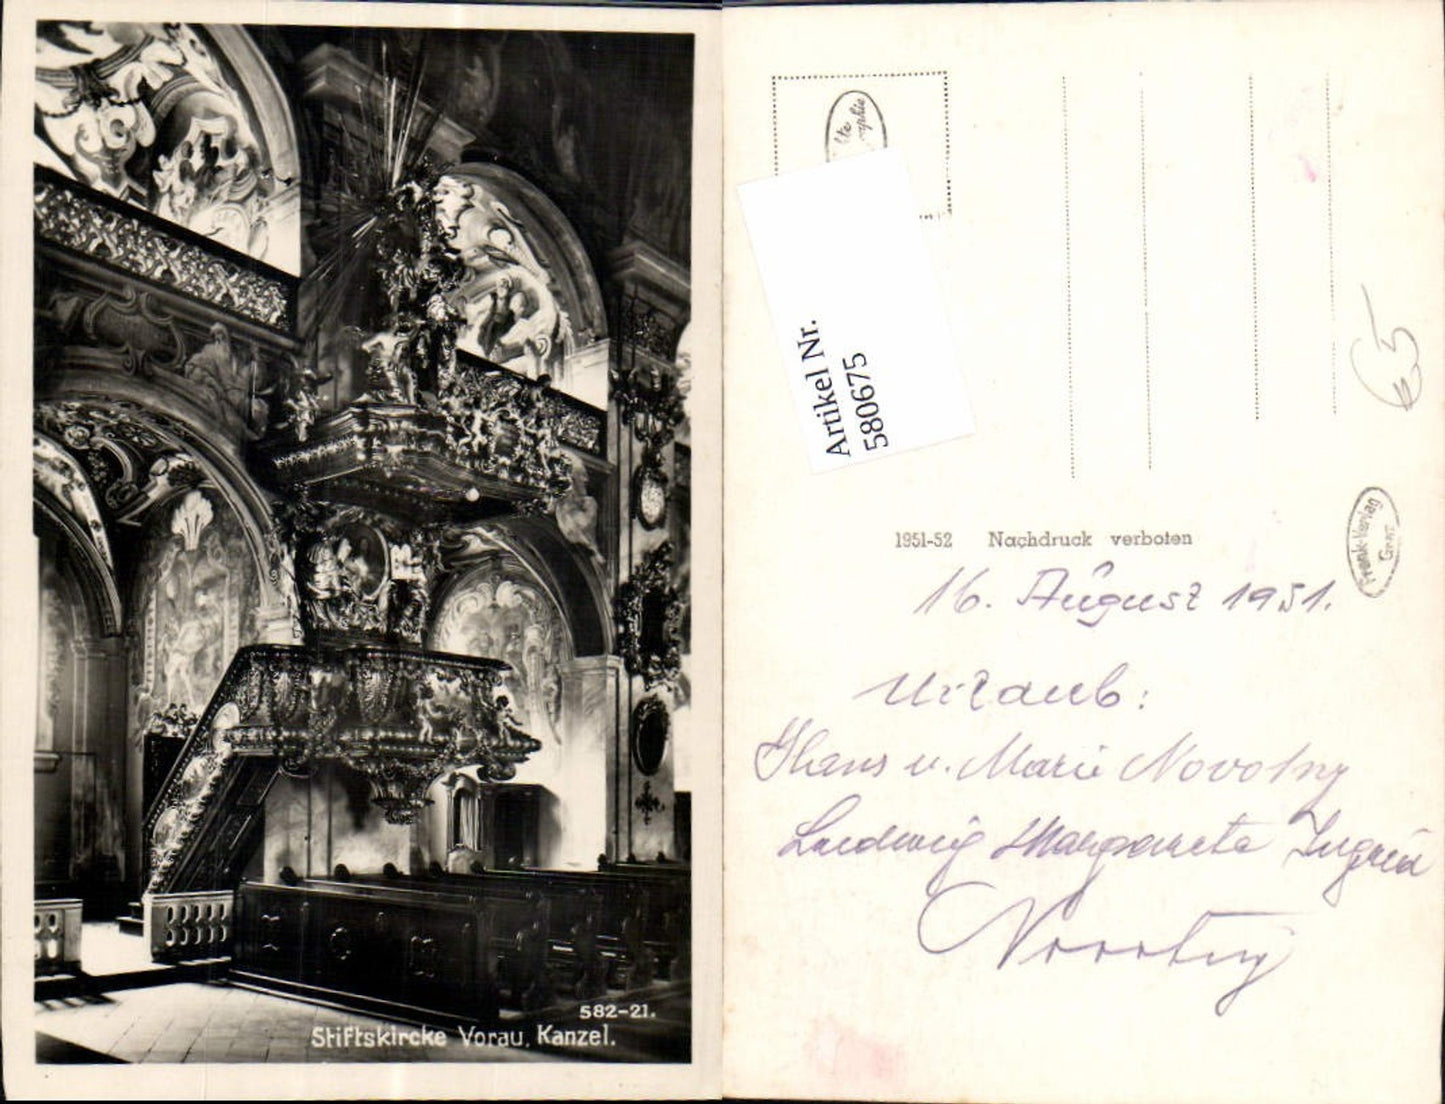 582-21.
Stiftskirche Vorau, Kanzel.
Artikel Nr.
580675
€5
1951-52 Nachdruck verboten
Frank-Verlag
Graz
16. August 1951.
Urlaub:
Hans u. Marie Novotny
Ludwig Margarete Ingrid
Novotny